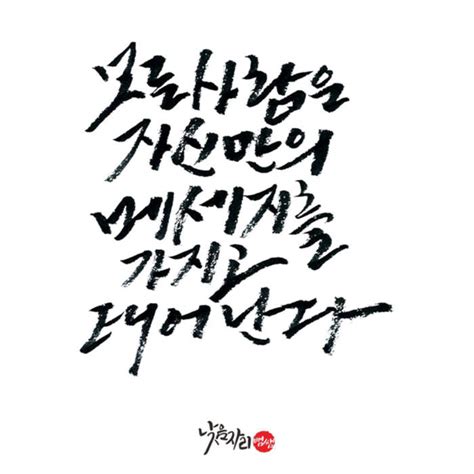 모든사람은
자신만의
메세지를
가지고
태어난다
낮음자리